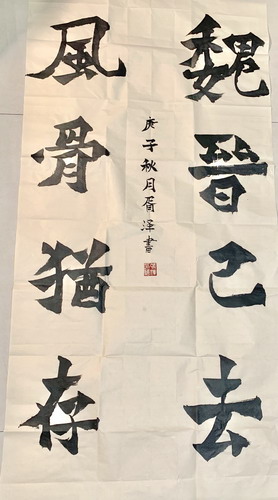 魏晉已去
風骨猶存
庚子秋月屑澤書